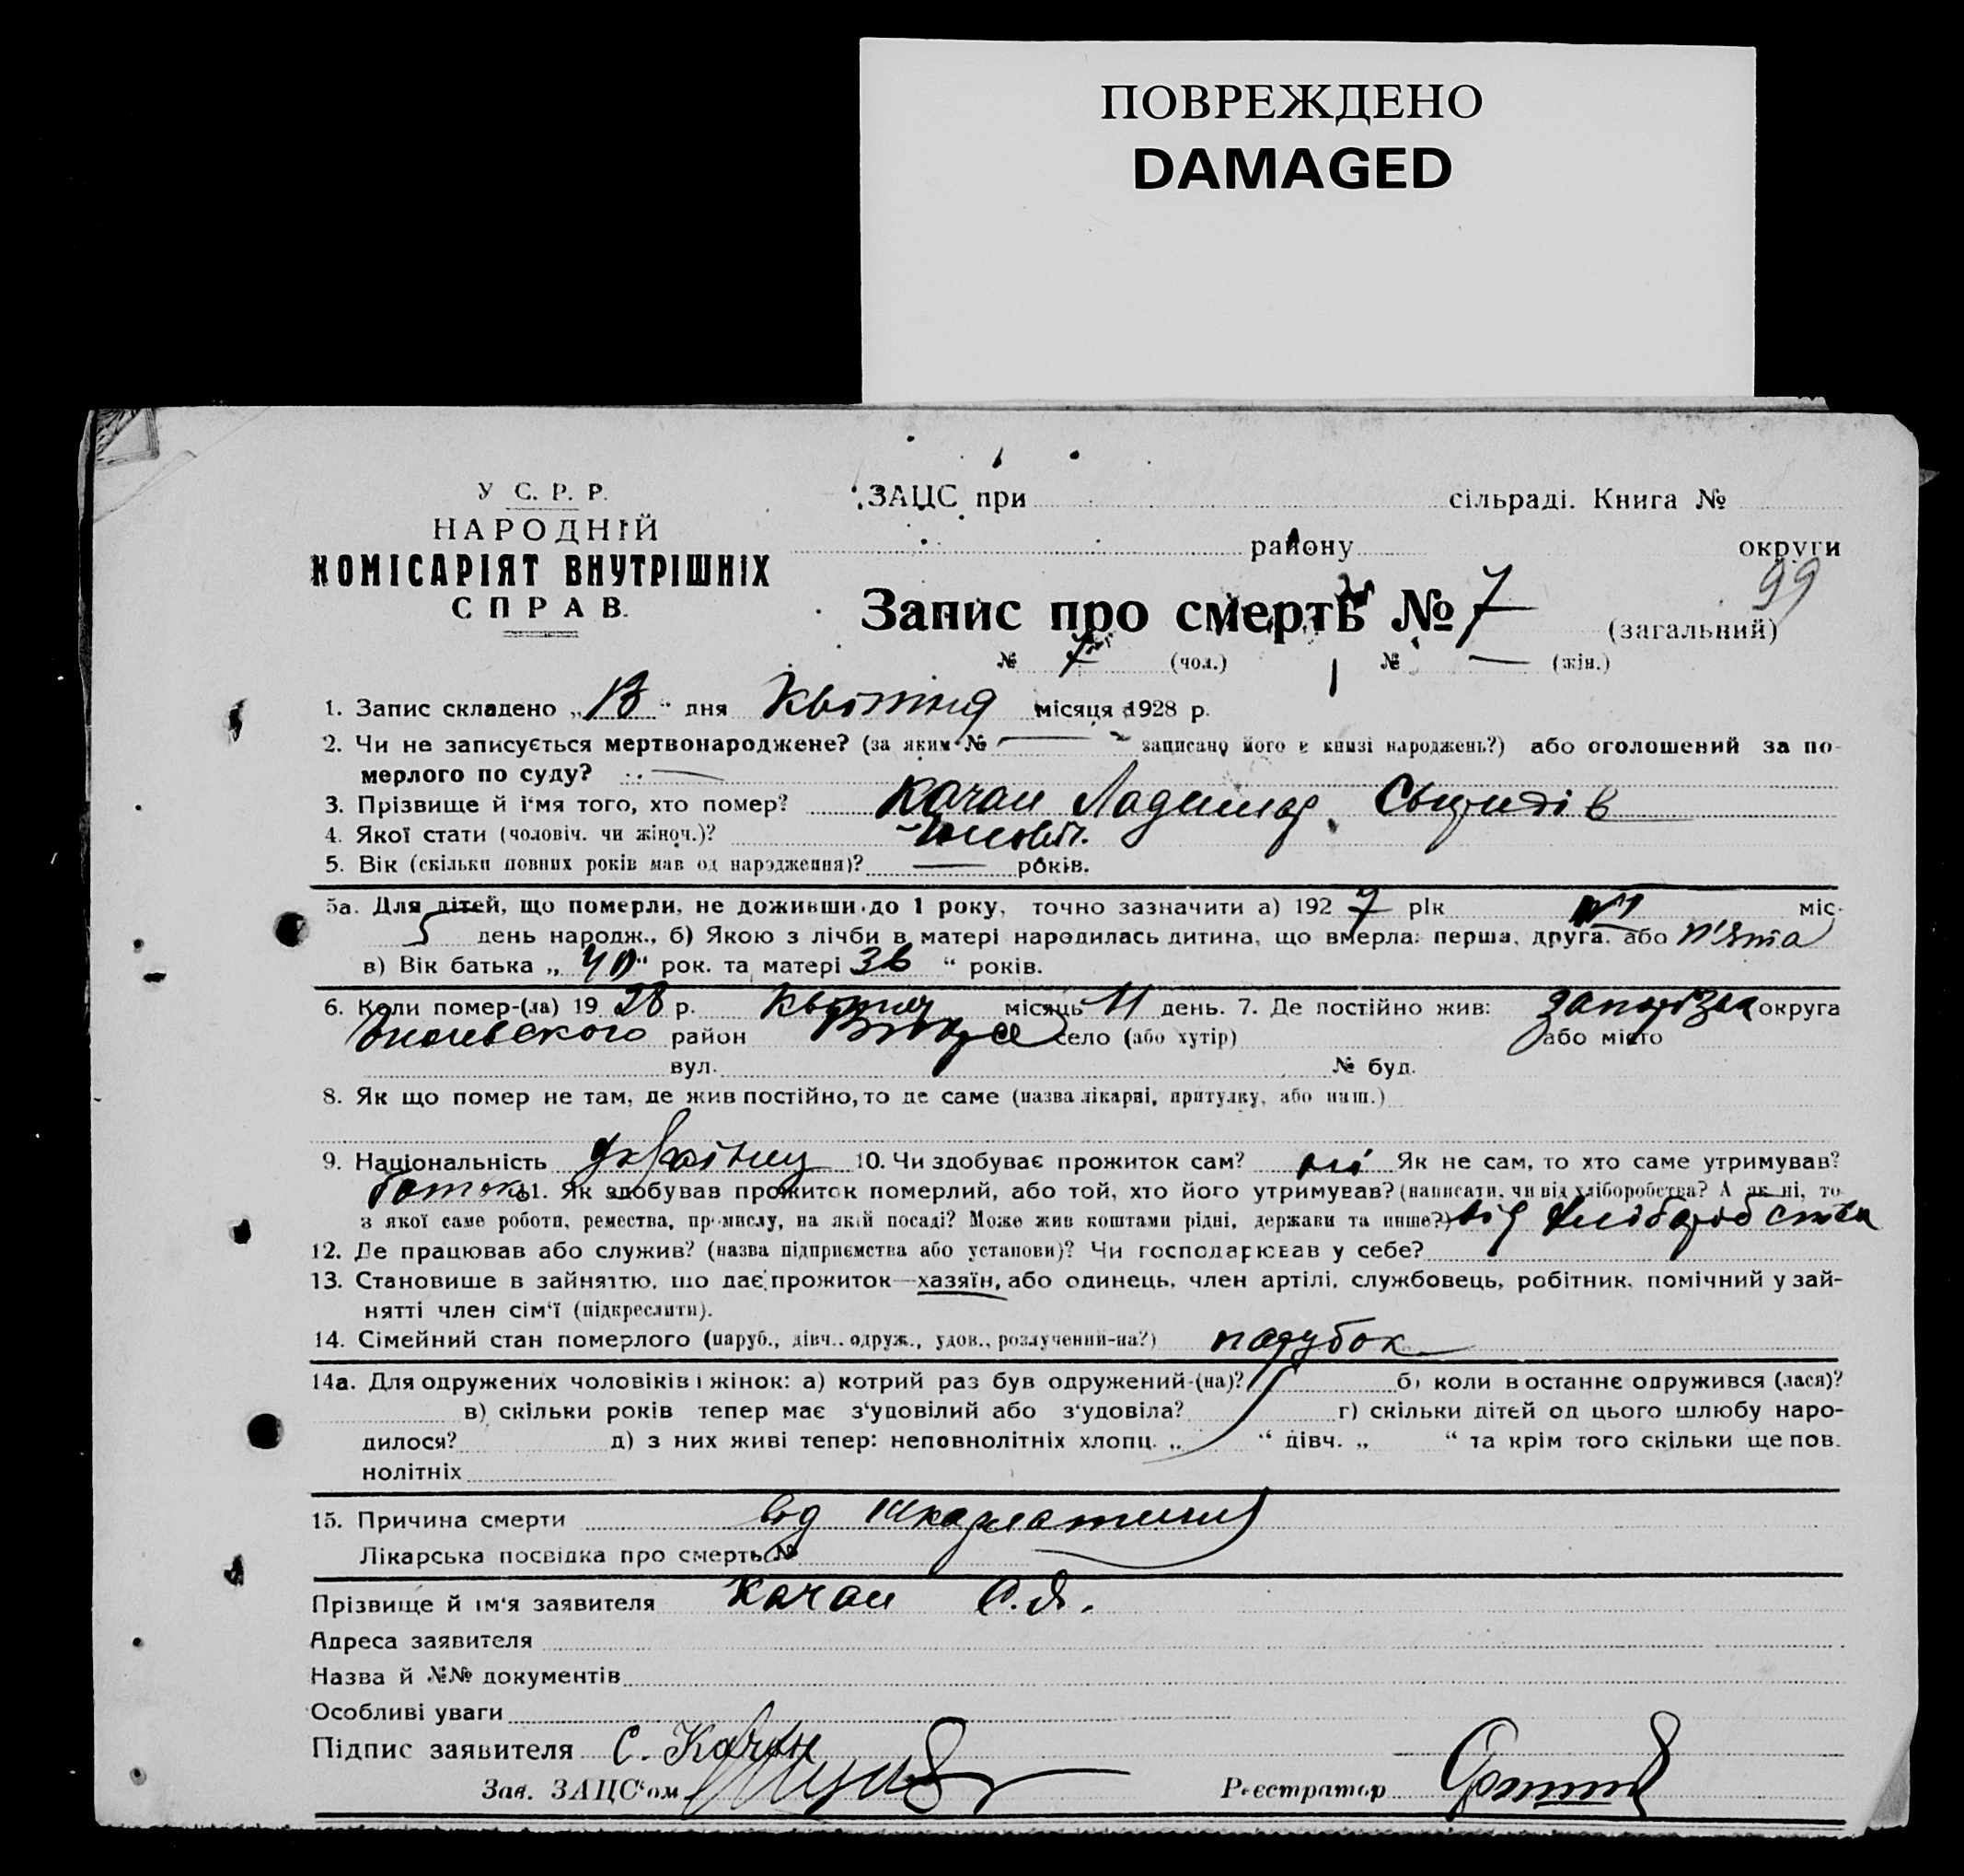 ПОВРЕЖДЕНО
DAMAGED
У С. Р. Р.
НАРОДНІЙ
КОМІСАРІЯТ ВНУТРІШНІХ
СПРАВ.
ЗАЦС при сільраді. Книга №
району округи
99
Запис про смерть № 7 (загальний)
№ 7 (чол.) № — (жін.)
1. Запис складено „ “ дня Квітня місяця 1928 р.
2. Чи не записується мертвонароджене? (за яким № — записано його в книзі народжень?) або оголошений за по-
мерлого по суду? —
3. Прізвище й і'мя того, хто помер? Качан
4. Якої стати (чоловіч. чи жіноч.)?
5. Вік (скільки повних років мав од народження)? — років.
5а. Для дітей, що померли, не доживши до 1 року, точно зазначити а) 1927 рік міс.
5 день народж., б) Якою з лічби в матері народилась дитина, що вмерла: перша, друга, або п'ята
в) Вік батька „40“ рок. та матері 36 “ років.
6. Коли помер-(ла) 1928 р. Квітня місяць 11 день. 7. Де постійно жив: округа
район село (або хутір) або місто
вул. № буд.
8. Як що помер не там, де жив постійно, то де саме (назва лікарні, притулку, або инш.)
9. Національність українець 10. Чи здобуває прожиток сам? ні Як не сам, то хто саме утримував?
батько 11. Як здобував прожиток померлий, або той, хто його утримував? (написати, чи від хліборобства? А як ні, то
з якої саме роботи, ремества, промислу, на якій посаді? Може жив коштами рідні, держави та инше?) від хліборобства
12. Де працював або служив? (назва підприємства або установи)? Чи господарював у себе?
13. Становище в зайняттю, що дає прожиток—хазяїн, або одинець, член артілі, службовець, робітник, помічний у зай-
нятті член сім'ї (підкреслити).
14. Сімейний стан померлого (паруб., дівч., одруж., удов., розлучений-на?) парубок
14а. Для одружених чоловіків і жінок: а) котрий раз був одружений-(на)? б) коли востаннє одружився (лася)?
в) скільки років тепер має з'удовілий або з'удовіла? г) скільки дітей од цього шлюбу наро-
дилося? д) з них живі тепер: неповнолітніх хлопц. „ “ дівч. „ “ та крім того скільки ще пов.
нолітніх
15. Причина смерти від шкарлатини
Лікарська посвідка про смерть №
Прізвище й ім'я заявителя Качан С.Я.
Адреса заявителя
Назва й №№ документів
Особливі уваги
Підпис заявителя С. Качан
Зав. ЗАЦС'ом Реєстратор